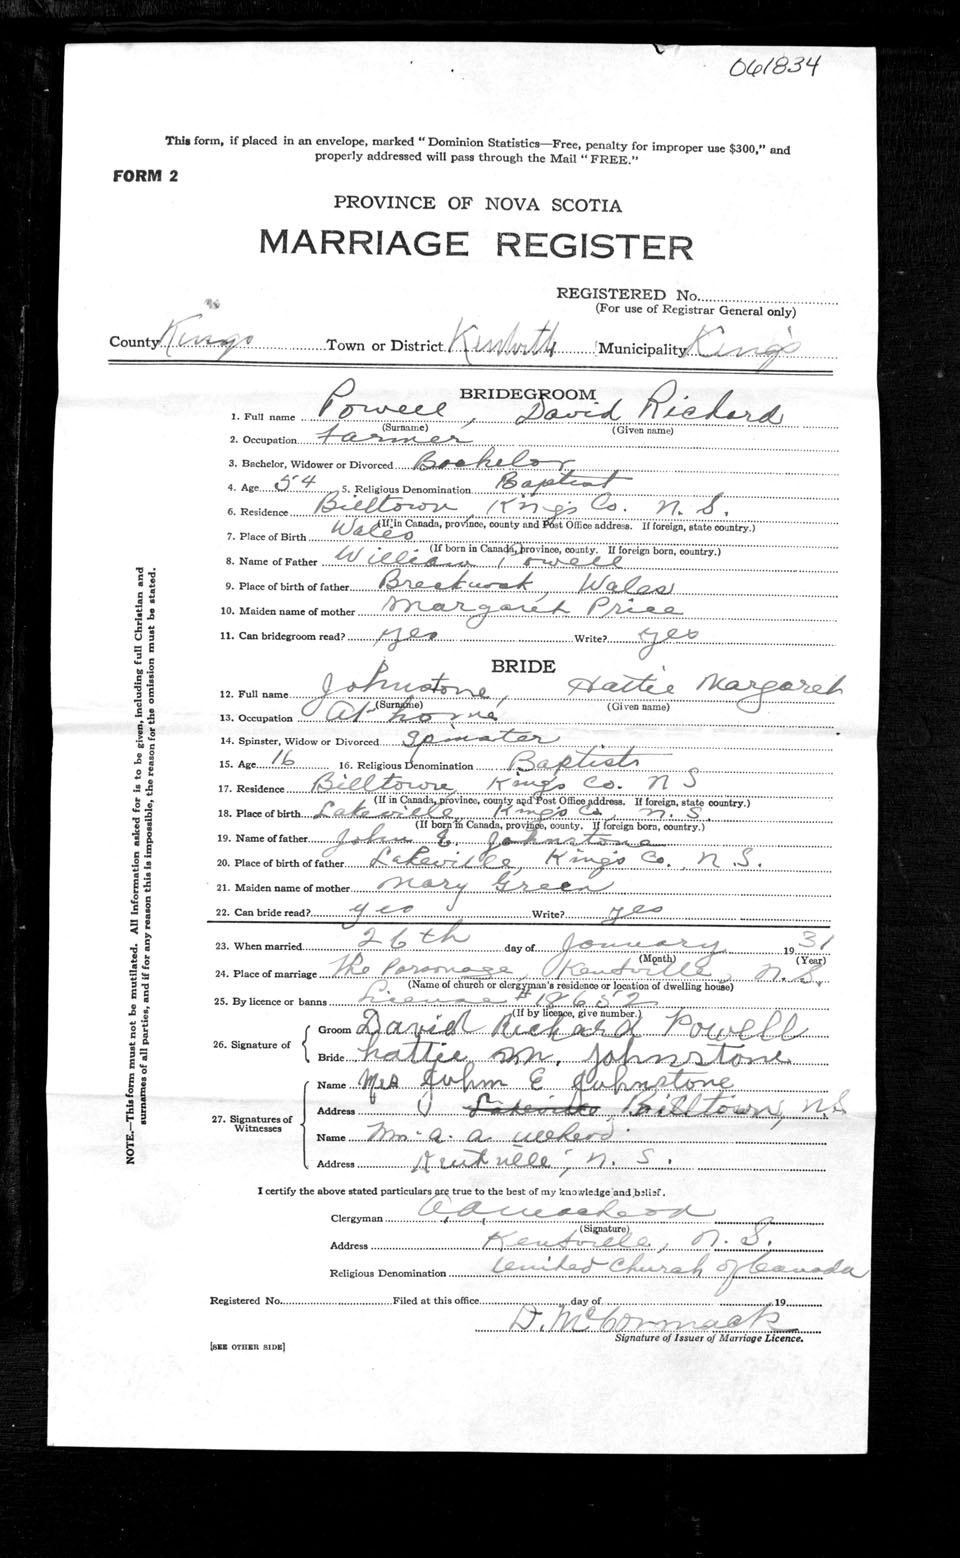 061834
This form, if placed in an envelope, marked "Dominion Statistics—Free, penalty for improper use $300," and
properly addressed will pass through the Mail "FREE."
FORM 2
PROVINCE OF NOVA SCOTIA
MARRIAGE REGISTER
REGISTERED No.
(For use of Registrar General only)
County Kings Town or District Municipality King's
BRIDEGROOM
1. Full name Powell, David Richard
(Surname) (Given name)
2. Occupation Farmer
3. Bachelor, Widower or Divorced Bachelor
4. Age 54 5. Religious Denomination Baptist
6. Residence Billtown, King's Co. N. S.
(If in Canada, province, county and Post Office address. If foreign, state country.)
7. Place of Birth Wales
(If born in Canada, province, county. If foreign born, country.)
8. Name of Father William Powell
9. Place of birth of father Wales
10. Maiden name of mother Margaret Price
11. Can bridegroom read? yes Write? yes
BRIDE
12. Full name Johnstone, Hattie Margaret
(Surname) (Given name)
13. Occupation At home
14. Spinster, Widow or Divorced Spinster
15. Age 16 16. Religious Denomination Baptist
17. Residence Billtown, King's Co. N S
(If in Canada, province, county and Post Office address. If foreign, state country.)
18. Place of birth Lakeville King's Co, N. S.
(If born in Canada, province, county. If foreign born, country.)
19. Name of father John E. Johnstone
20. Place of birth of father Lakeville, King's Co., N. S.
21. Maiden name of mother Mary Green
22. Can bride read? yes Write? yes
23. When married 26th day of January 1931
(Month) (Year)
24. Place of marriage The Parsonage, Kentville, N. S.
(Name of church or clergyman's residence or location of dwelling house)
25. By licence or banns License # 18652
(If by licence, give number.)
26. Signature of Groom David Richard Powell
Bride hattie M. Johnstone
27. Signatures of Witnesses
Name Mrs John E Johnstone
Address Lakeville Billtown, N.S.
Name Mrs. A. A.
Address Kentville, N. S.
I certify the above stated particulars are true to the best of my knowledge and belief.
Clergyman
(Signature)
Address Kentville, N. S.
Religious Denomination United Church of Canada
Registered No. Filed at this office day of 19
D. McCormack
Signature of Issuer of Marriage Licence.
[SEE OTHER SIDE]
NOTE.—This form must not be mutilated. All information asked for is to be given, including full Christian and
surnames of all parties, and if for any reason this is impossible, the reason for the omission must be stated.